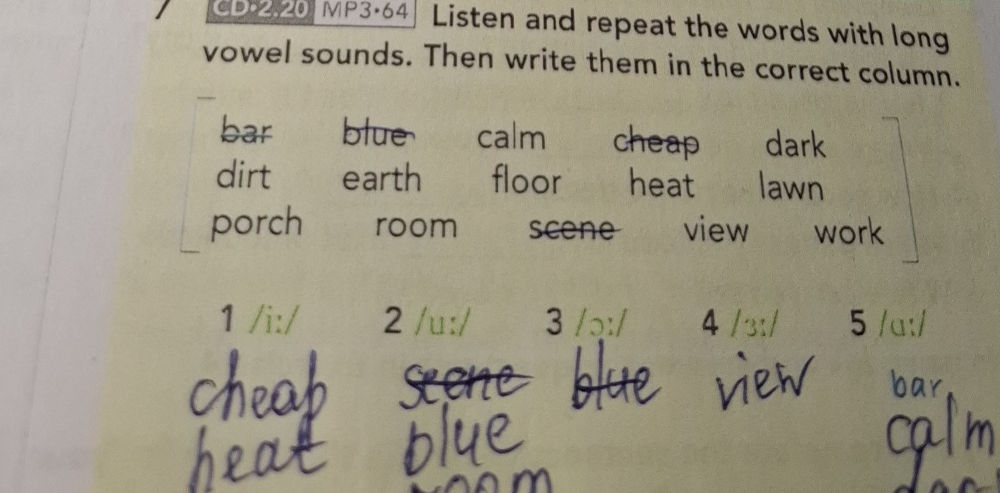 CD•2.20 MP3•64 Listen and repeat the words with long
vowel sounds. Then write them in the correct column.
bar blue calm cheap dark
dirt earth floor heat lawn
porch room scene view work
1 /iː/ 2 /uː/ 3 /ɔː/ 4 /ɜː/ 5 /ɑː/
cheap scene blue view bar
heat blue calm
room